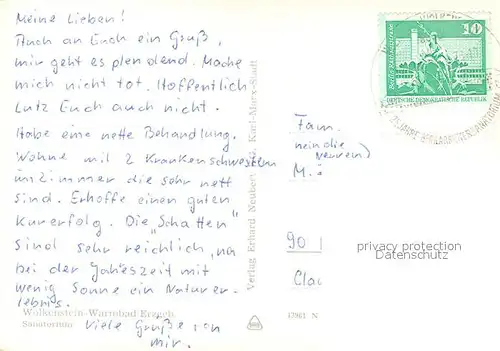 Meine Lieben!
Auch an Euch ein Gruß,
mir geht es plendend. Mache
mich nicht tot. Hoffentlich
Lutz Euch auch nicht.
Habe eine nette Behandlung.
Wohne mit 2 Krankenschwestern
im Zimmer die sehr nett
sind. Erhoffe einen guten
Kurerfolg. Die „Schatten"
sind sehr reichlich, na
bei der Jahreszeit mit
wenig Sonne ein Naturer-
lebnis.
Viele Grüße von
mir.
Wolkenstein-Warmbad Erzgeb.
Sanatorium
Verlag Erhard Neubert KG. Karl-Marx-Stadt
17961 N
10
DEUTSCHE DEMOKRATISCHE REPUBLIK
Fam.
M.
90
privacy protection
Datenschutz